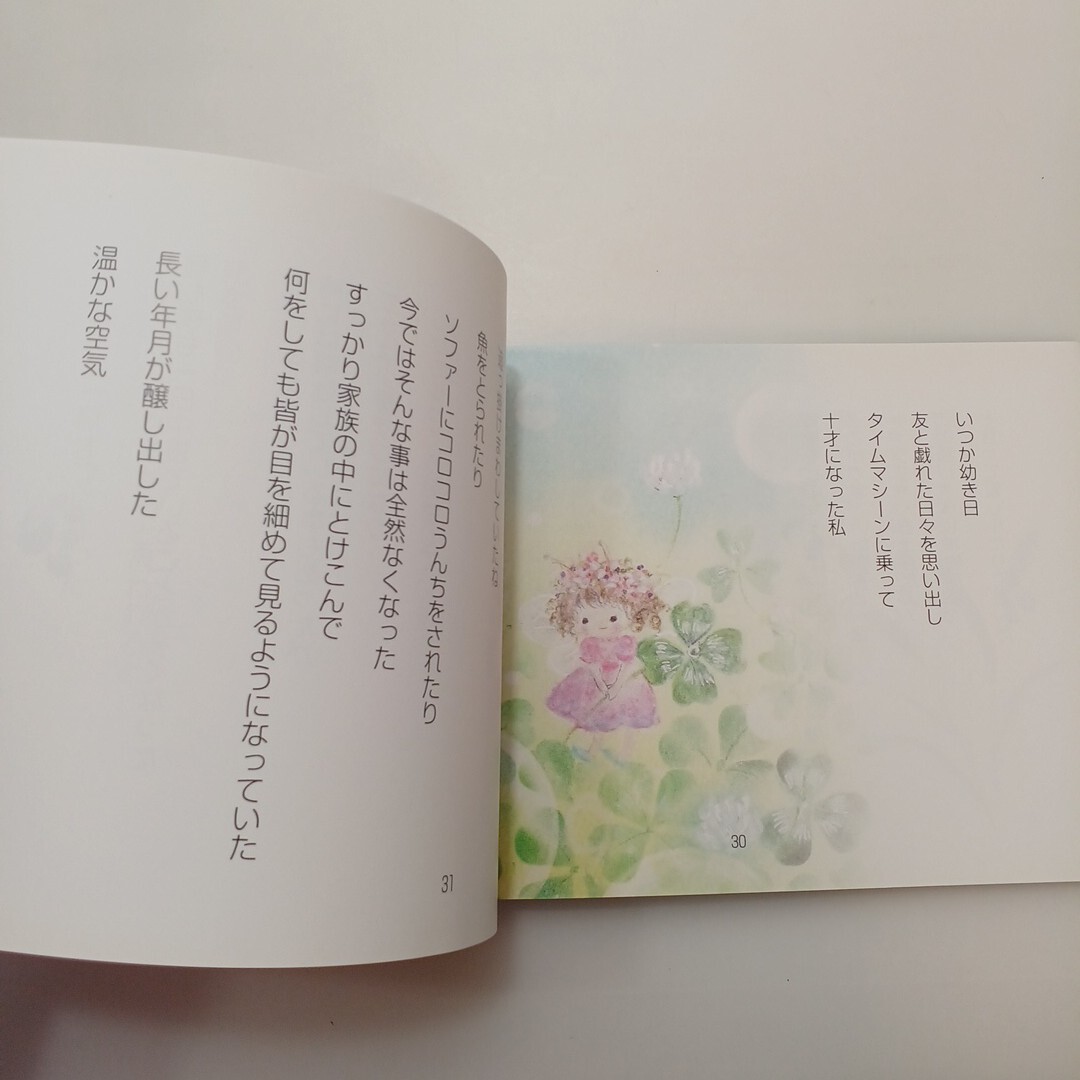 いつか幼き日
友と戯れた日々を思い出し
タイムマシーンに乗って
十才になった私
30
魚をとられたり
ソファーにコロコロうんちをされたり
今ではそんな事は全然なくなった
すっかり家族の中にとけこんで
何をしても皆が目を細めて見るようになっていた
長い年月が醸し出した
温かな空気
31